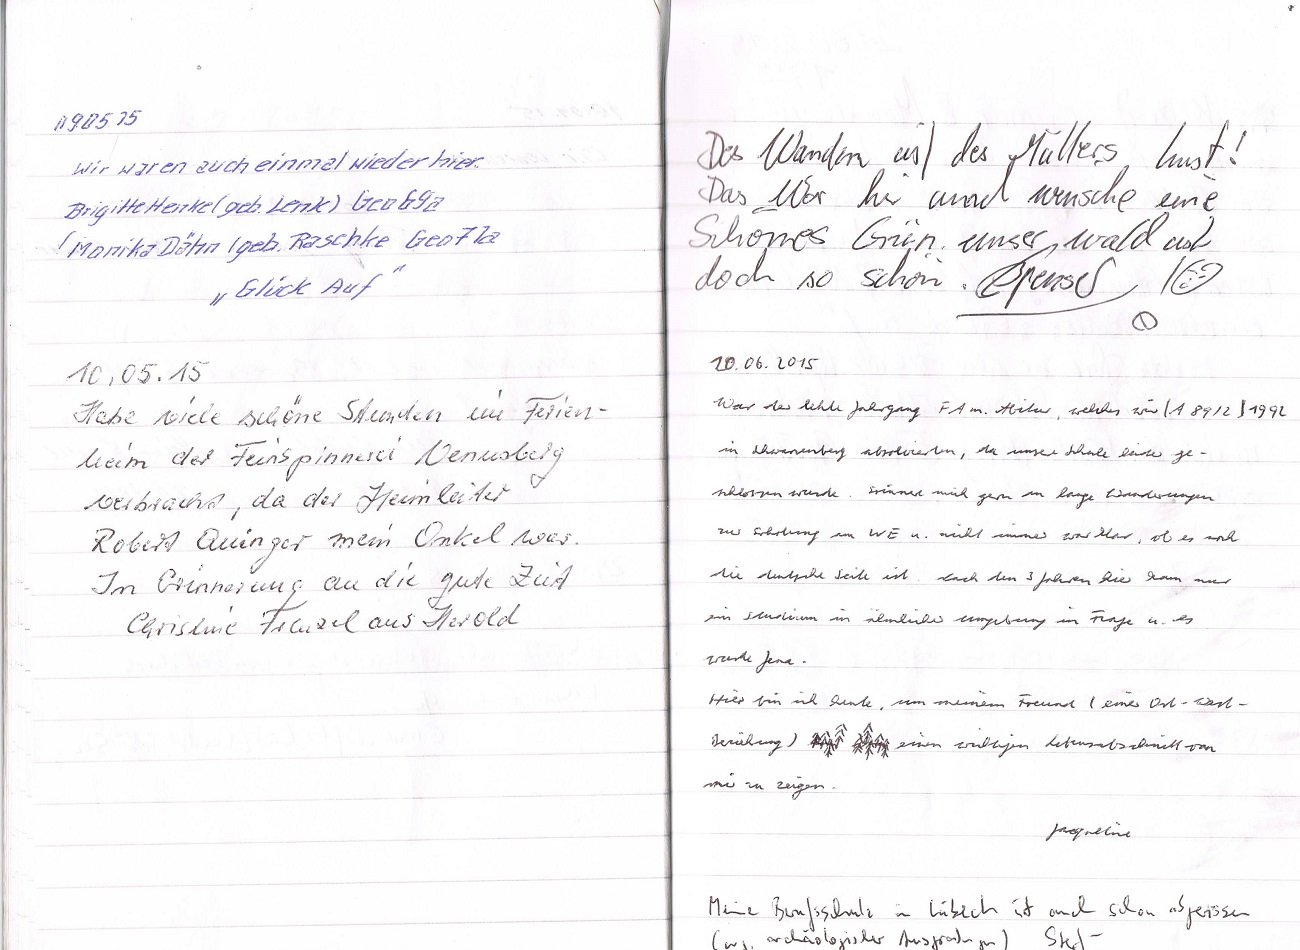 Wir waren auch einmal wieder hier.
Brigitte Henkel (geb. Lenk)
Monika Dähn (geb. Raschke
"Glück Auf"
10.05.15
Habe viele schöne Stunden im Ferien-
heim der Feinspinnerei Venusberg
verbracht, da der Heimleiter
Robert Quinger mein Onkel war.
In Erinnerung an die gute Zeit
Christine Frenzel aus Herold
Das Wandern ist des Müllers Lust!
Das War hir unnd wunsche eine
Schönes Grün. unser wald ist
doch so schön.
10.06.2015
War der letzte Jahrgang FA m. Abitur, welches wir (1989/2) 1992
in absolvierten, da unsere Schule leider ge-
schlossen wurde. Erinnere mich gern an lange Wanderungen
zur Erholung am WE u. nicht immer war klar, ob es noch
die deutsche Seite ist. Nach den 3 Jahren hier kam nur
ein Studium in ähnlicher Umgebung in Frage u. es
wurde Jena.
Hier bin ich heute, um meinem Freund (eine Ost-West-
Beziehung) einen wichtigen Lebensabschnitt von
mir zu zeigen.
Jacqueline
Meine Berufsschule in Lübeck ist auch schon abgerissen
(wg. archäologischer Ausgrabungen)